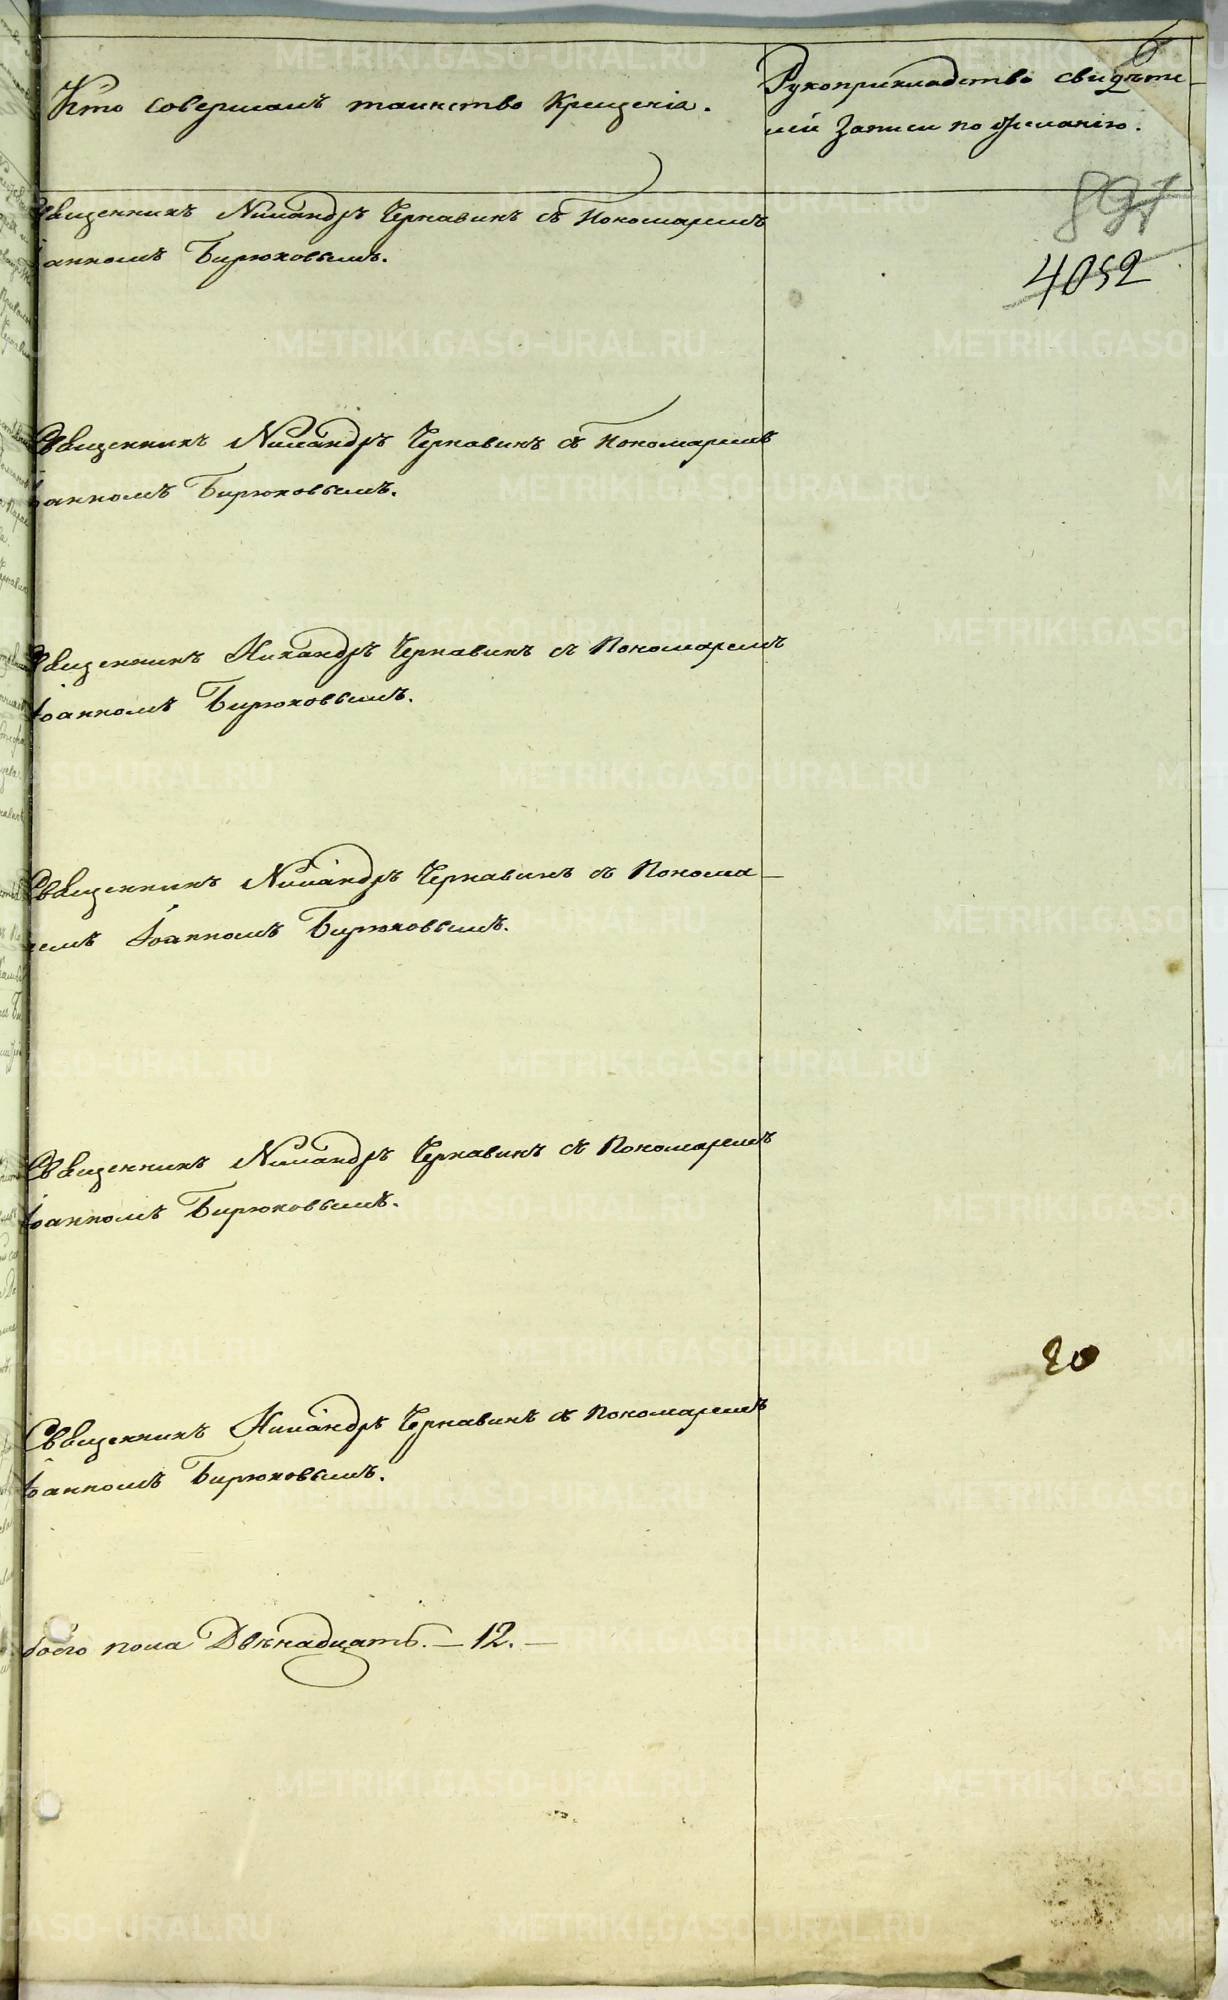 Кто совершалъ таинство Крещенія.
Рукоприкладство свидѣте-
лей записи по желанію.
6
891
4052
Священникъ Никандръ Чернавинъ съ Пономаремъ
Іоанномъ Бирюковымъ.
Священникъ Никандръ Чернавинъ съ Пономаремъ
Іоанномъ Бирюковымъ.
Священникъ Никандръ Чернавинъ съ Пономаремъ
Іоанномъ Бирюковымъ.
Священникъ Никандръ Чернавинъ съ Понома-
ремъ Іоанномъ Бирюковымъ.
Священникъ Никандръ Чернавинъ съ Пономаремъ
Іоанномъ Бирюковымъ.
20
Священникъ Никандръ Чернавинъ съ Пономаремъ
Іоанномъ Бирюковымъ.
боего пола Двѣнадцать. — 12. —
METRIKI.GASO-URAL.RU